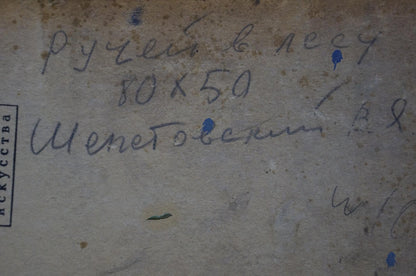 Ручей в лесу
80х50
Шепетовский В Я
искусства